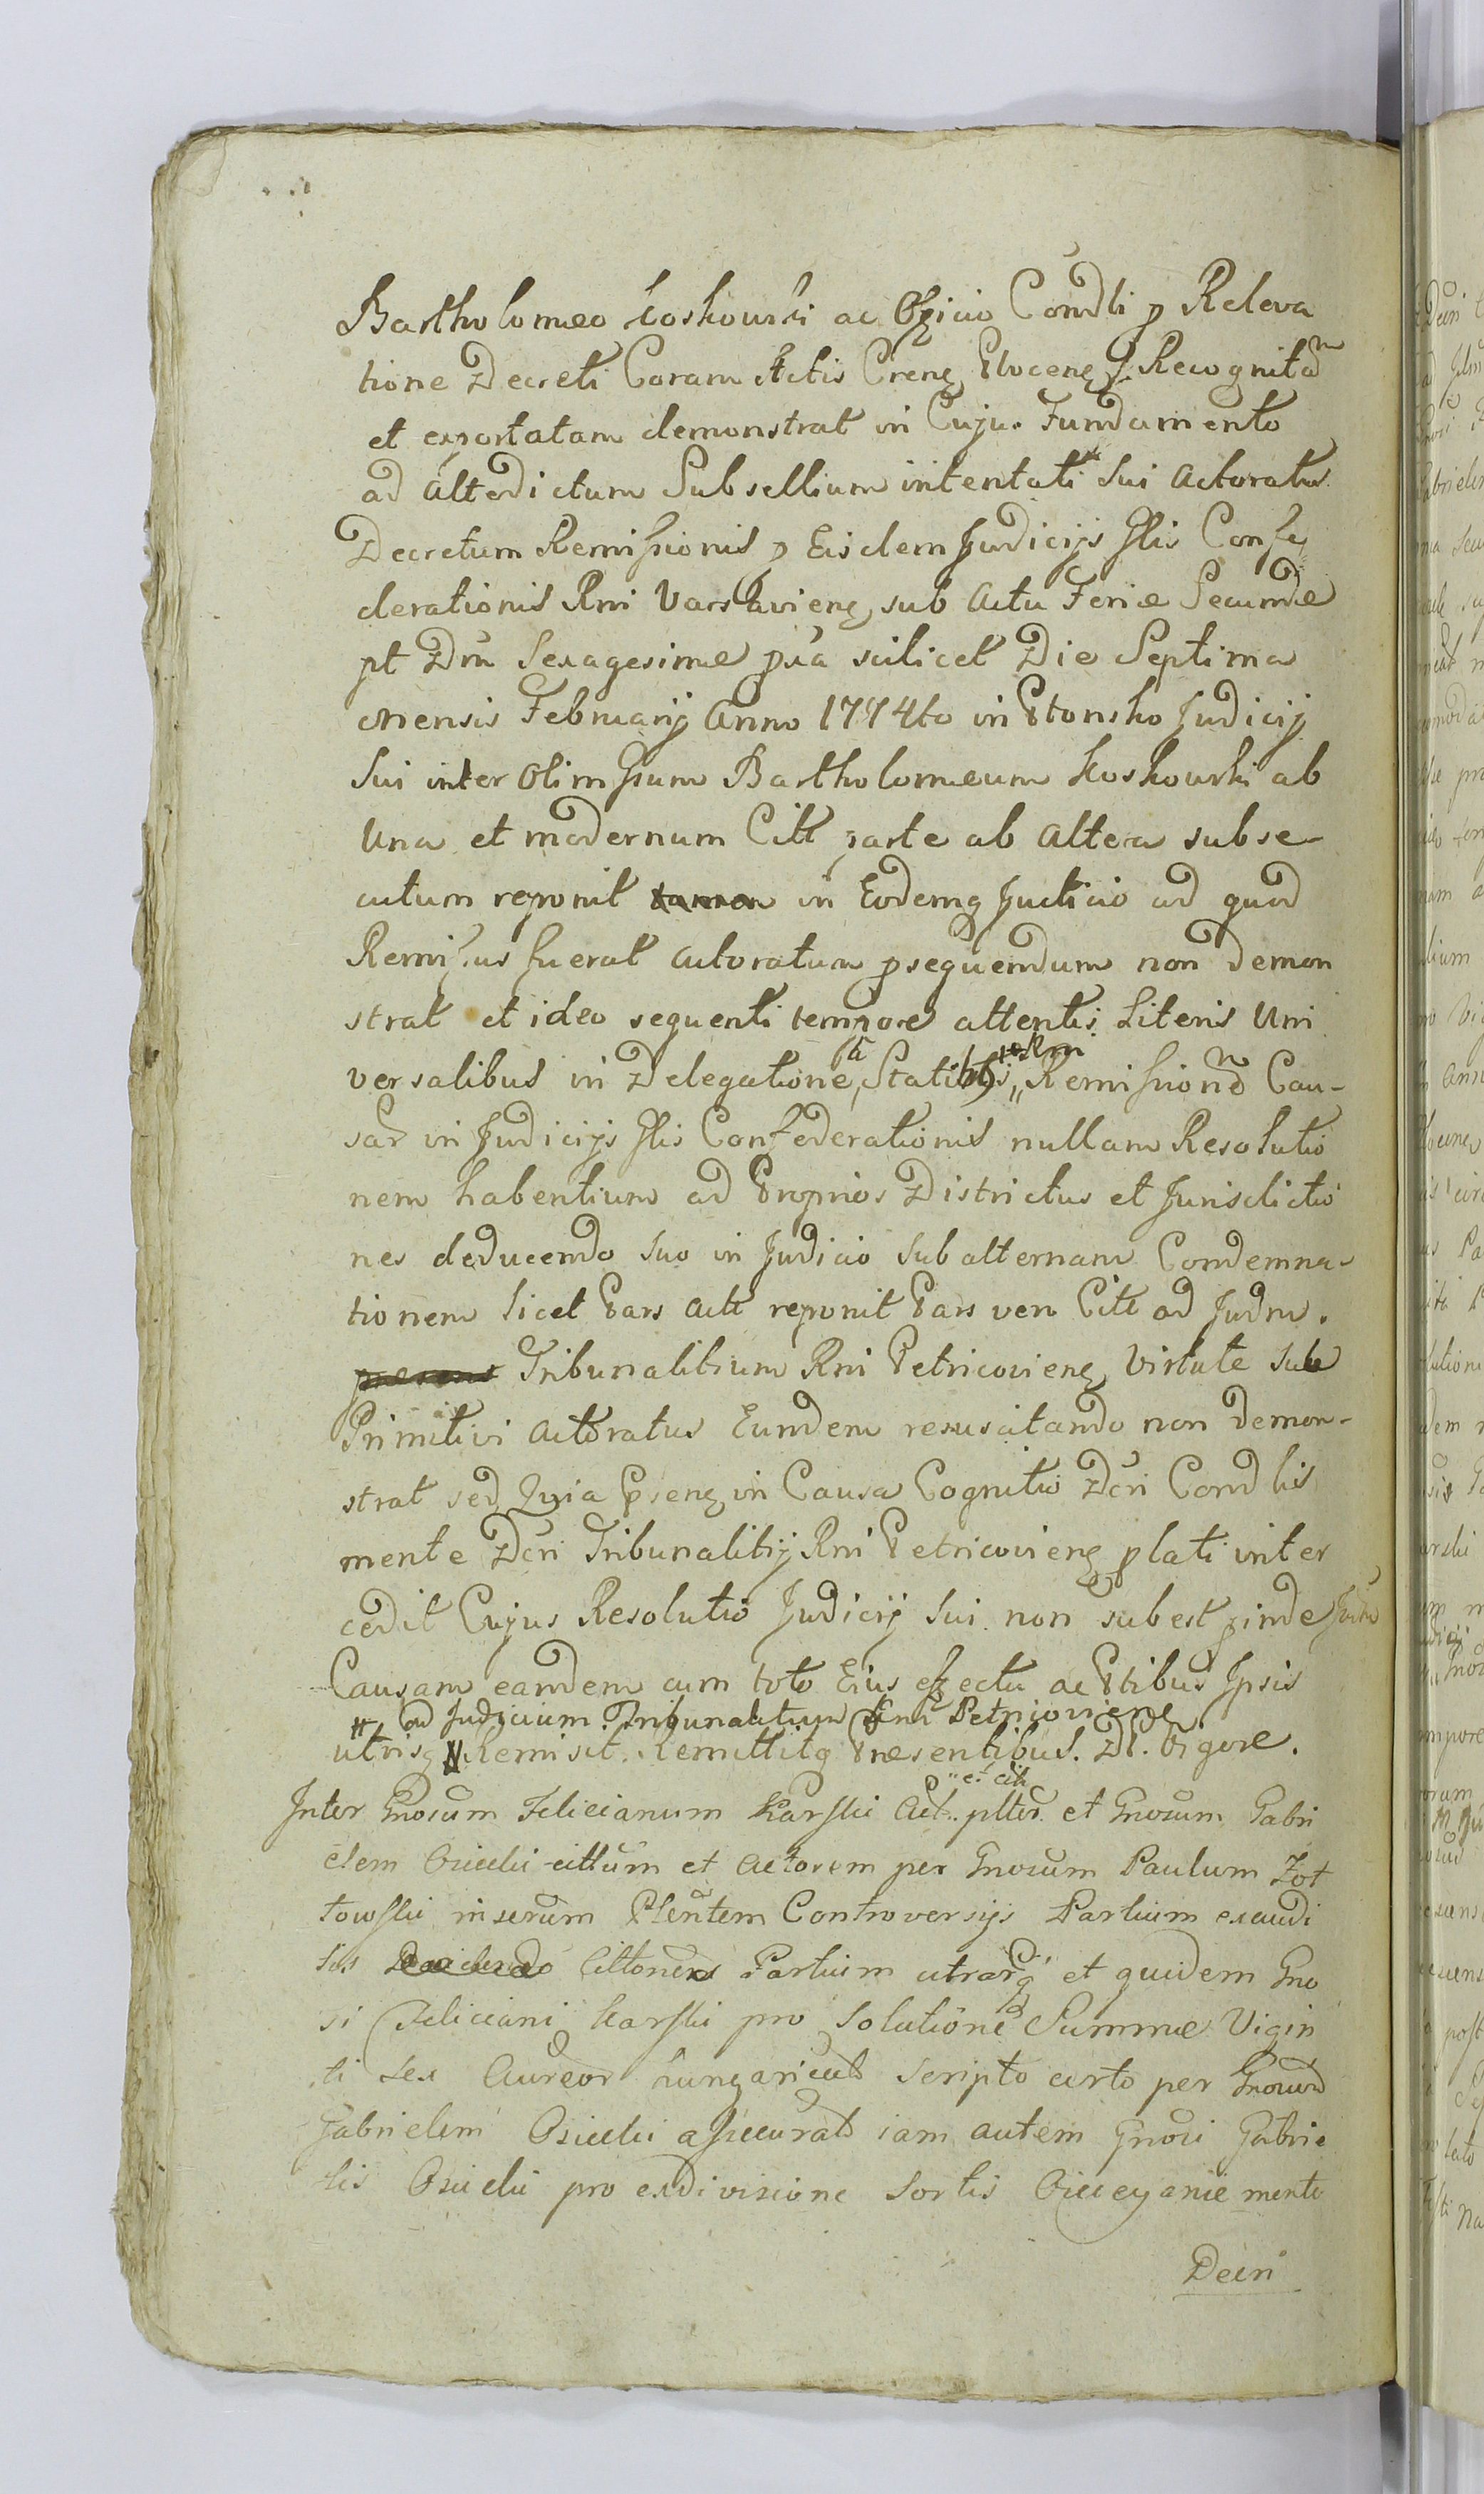 Bartholomeo Koskowski ac Officio Condli p Releva
tione Decreti Coram Actis Crens Plocens Recognitam
et exportatam demonstrat in Cujus Fundamento
ad Altedictum Subsellium intentati Sui Actoratus
Decretum Remissionis p Eisdem Judicijs Glis Confe
derationis Rni Varsaviens sub Actu Feriæ Secundæ
pt Dnm Sexagesimæ pxa scilicet Die Septima
mensis Februarij Anno 1774to in Płonsko Judicij
Sui inter olim Gsum Bartholomæum Koskowski ab
Una et modernum Citt parte ab Altera subse-
cutum reponit tamen in Eodemq Judicio ad quod
Remissus fuerat Actoratum psequendum non demon
strat et ideo sequenti tempore attentis Literis Uni
versalibus in Delegatione Remissionem Cau-
sar in Judicijs Glis Confederationis nullam Resolutio
nem habentium ad Proprios Districtus et Jurisdictio
nes deducendo suo in Judicio Subalternam Condemna-
tionem licet Pars Act reponit Pars vero Citt ad Judm.
Tribunalitium Rni Petricoviens Virtute Sui
Primitivi Actoratus Eundem resuscitando non demon-
strat sed Quia Psens in Causa Cognitio Dcri Condlis
mente Dcri Tribunalitij Rni Petricoviens p lati inter
cedit Cujus Resolutio Judicij Sui non subest pinde Judm
Causam eandem cum toto Eius effectu ac Ptibus Ipsis
# ad Judicium Tribunalitium Rni Petricoviens
utrisq # Remisit Remittitq Præsentibus. Dt. Vigore.
et citt
Inter Gnosum Felicianum Karski Act. pltes. et Gnosum Gabri
elem Osiecki cittum et Actorem per Gnosum Paulum Zot
towski inserum Plentem Controversijs Partium exaudi
tis Decidendo Cittones Partium utrarq et quidem Gno
si Feliciani Karski pro Solutione Summæ Vigin
ti sex Aureor hungarical scripto certo per Gnosum
Gabrielem Osiecki assecurat iam autem Gnosi Gabrie
lis Osiecki pro exdivisione Sortis mente
Decri